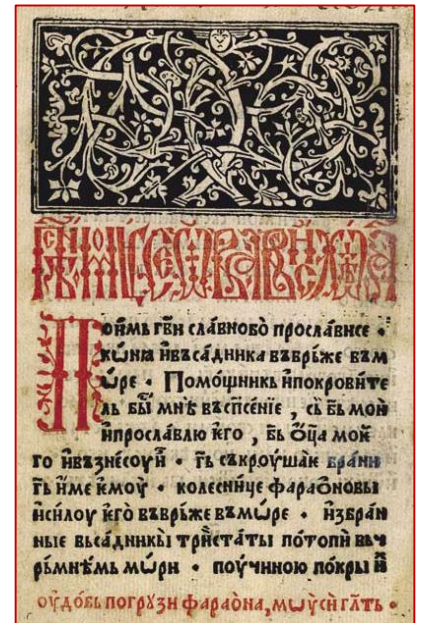 Поимь гв҃и сла́вно бо̀ просла́висе •
кѡ́нꙗ ѝвъса́дника въврь́же въ м
ѡ́ре • Помо́щникь ѝпокрови́те
ль бы́ мнѣ въ сп҃се́нїе , сь́ бь҃ мои
ѝпросла́влю ѥго , бь҃ ѻ҆ц҃а мое̏
го ѝвъзне́соу ѝ • гь҃ съкроу́шае бра́ни
гь҃ и́ме ѥмоу̀ • колесни́це фарао̑новы
ѝси́лоу ѥго̀ въврь́же въ мѡ́ре • ѝзбран
ные вьса́дникы̀ триста́ты потопѝ въ ч
рь́мнѣмь мѡ́ри • поучи́ною по́кры ѝ
оу҆до́бь погрꙋзи фарао́на, мѡѵ̈си́ гл҃ть •